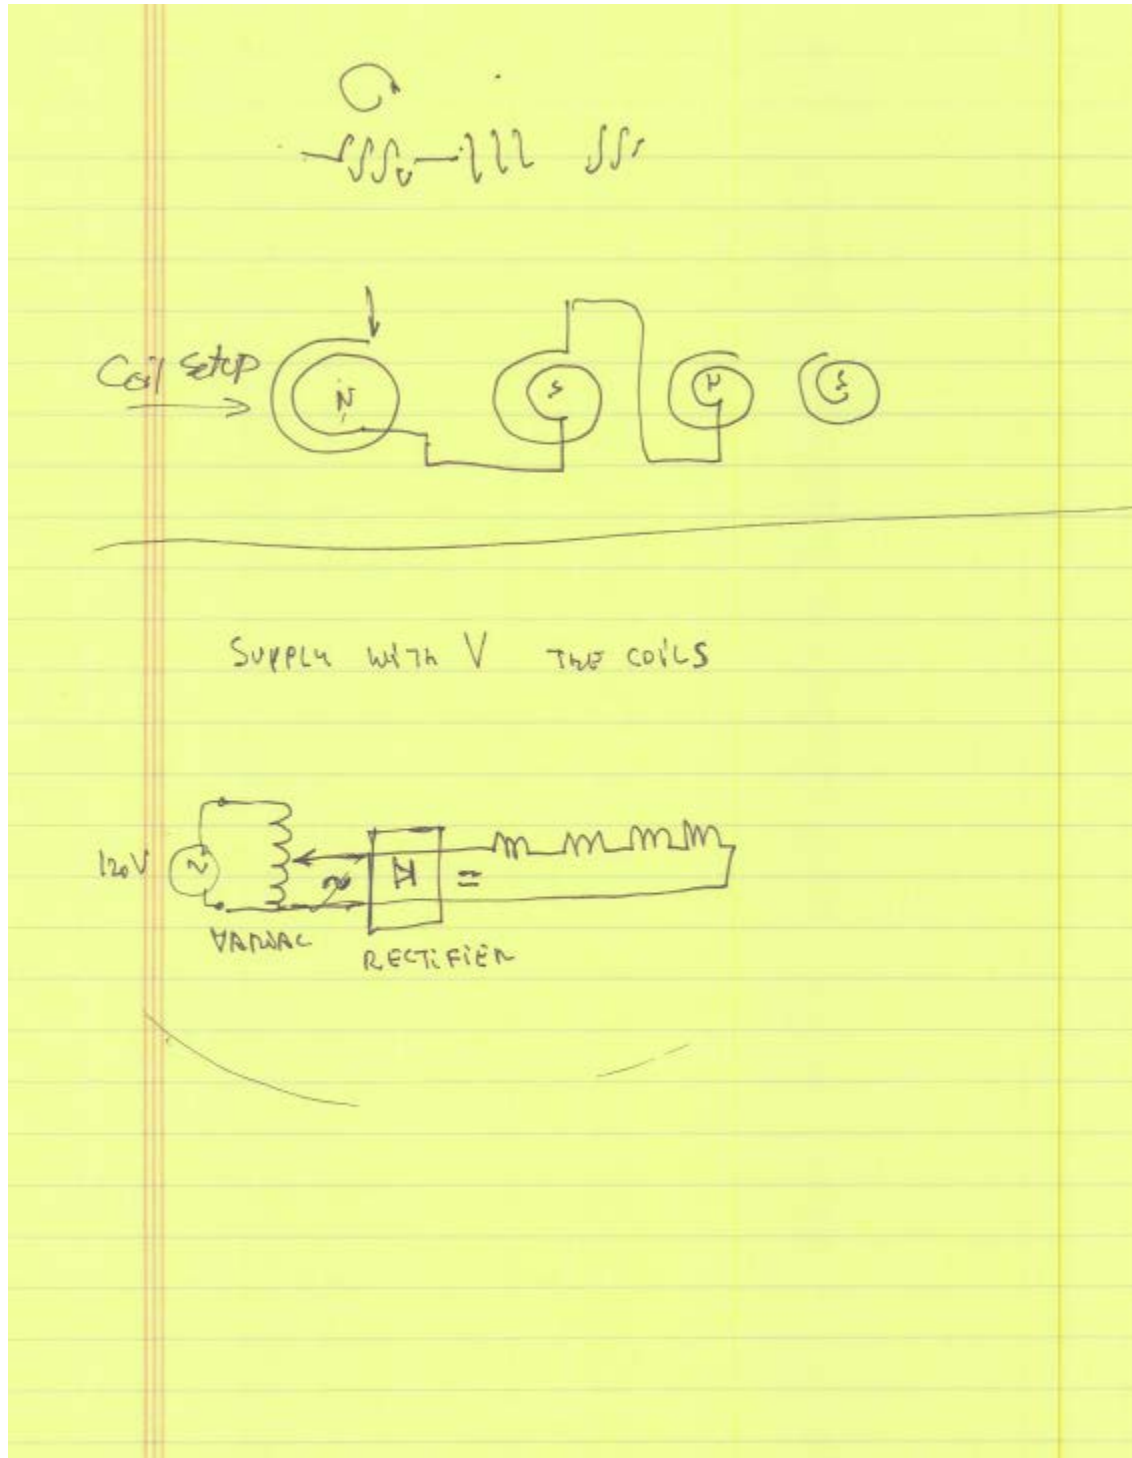 Coil setup
N S N S
SUPPLY WITH V THE COILS
120V
VARIAC
RECTIFIER